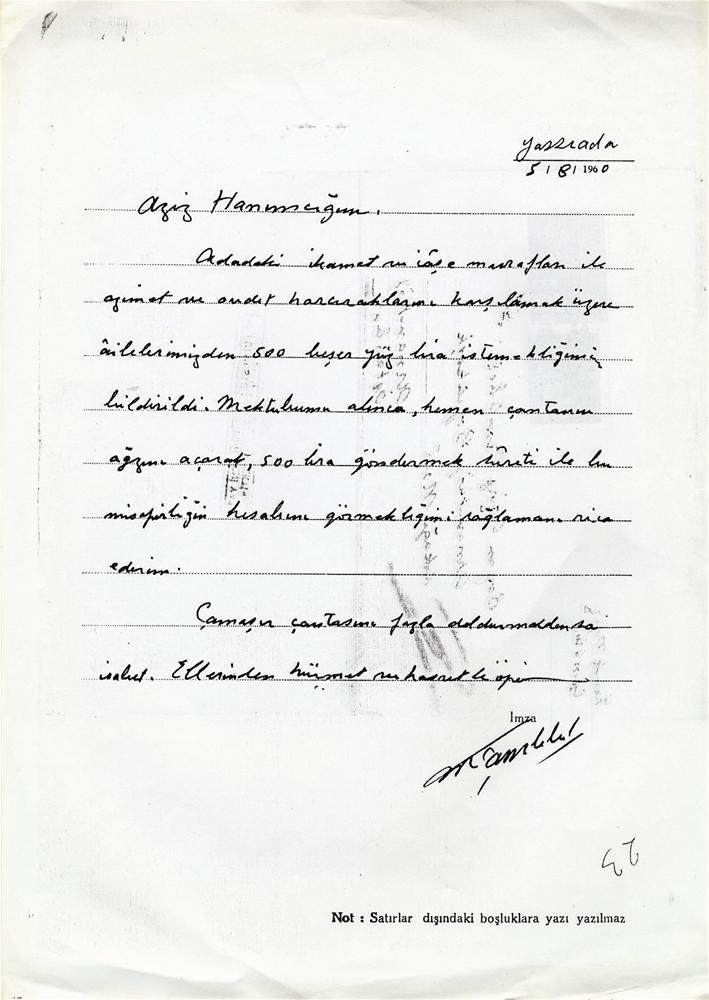 Yassıada
5/8/1960
Aziz Hanımcığım,
Adadaki ikamet ve iâşe masrafları ile
azimet ve avdet harcırahlarını karşılamak üzere
âilelerimizden 500 beşer yüz lira istemekliğimiz
bildirildi. Mektubumu alınca, hemen çantanın
ağzını açarak, 500 lira göndermek sûreti ile bu
misafirliğin hesabını görmekliğimi sağlamanı rica
ederim.
Çamaşır çantasını fazla doldurmaddınsa
isabet. Ellerinden hürmet ve hasretle öperim
İmza
23
Not : Satırlar dışındaki boşluklara yazı yazılmaz